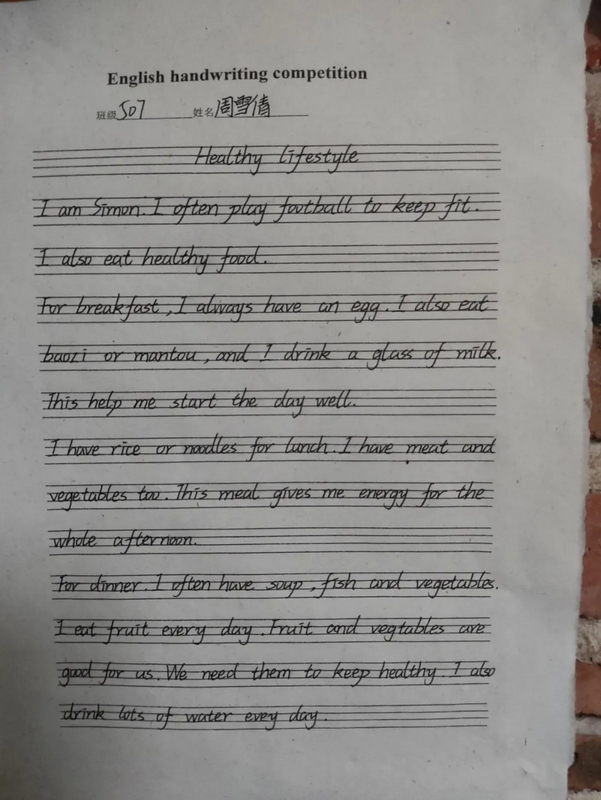 English handwriting competition
班级 507 姓名 周雪倩
Healthy lifestyle
I am Simon. I often play football to keep fit.
I also eat healthy food.
For breakfast, I always have an egg. I also eat
baozi or mantou, and I drink a glass of milk.
This help me start the day well.
I have rice or noodles for lunch. I have meat and
vegetables too. This meal gives me energy for the
whole afternoon.
For dinner. I often have soup, fish and vegetables.
I eat fruit every day. Fruit and vegtables are
good for us. We need them to keep healthy. I also
drink lots of water evey day.